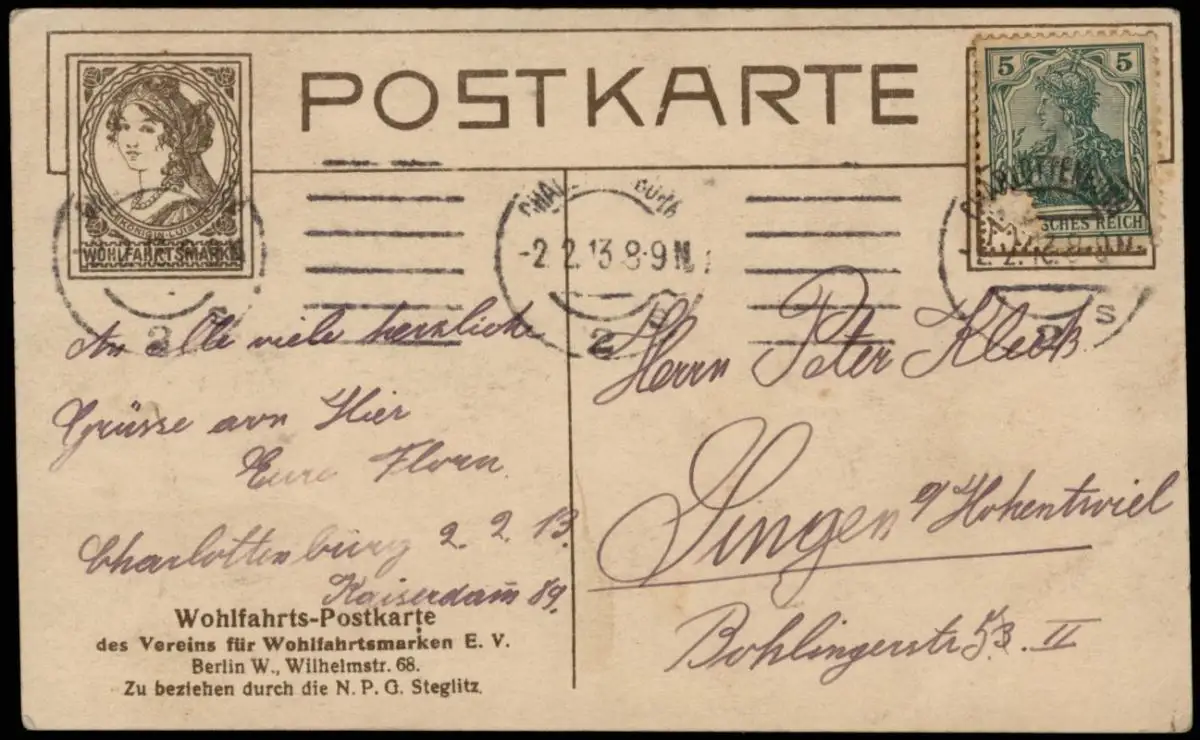 POSTKARTE
KÖNIGIN LUISE
WOHLFAHRTSMARKE
5 5
DEUTSCHES REICH
CHARLOTTENBURG
-2.2.13.8-9N.
2 S
An Alle viele herzliche
Grüsse von Hier
Eure Florn
Charlottenburg 2.2.13.
Kaiserdam 89.
Wohlfahrts-Postkarte
des Vereins für Wohlfahrtsmarken E. V.
Berlin W., Wilhelmstr. 68.
Zu beziehen durch die N. P. G. Steglitz.
Herrn Peter
Singen a/Hohentwiel
Bohlingerstr 53. II